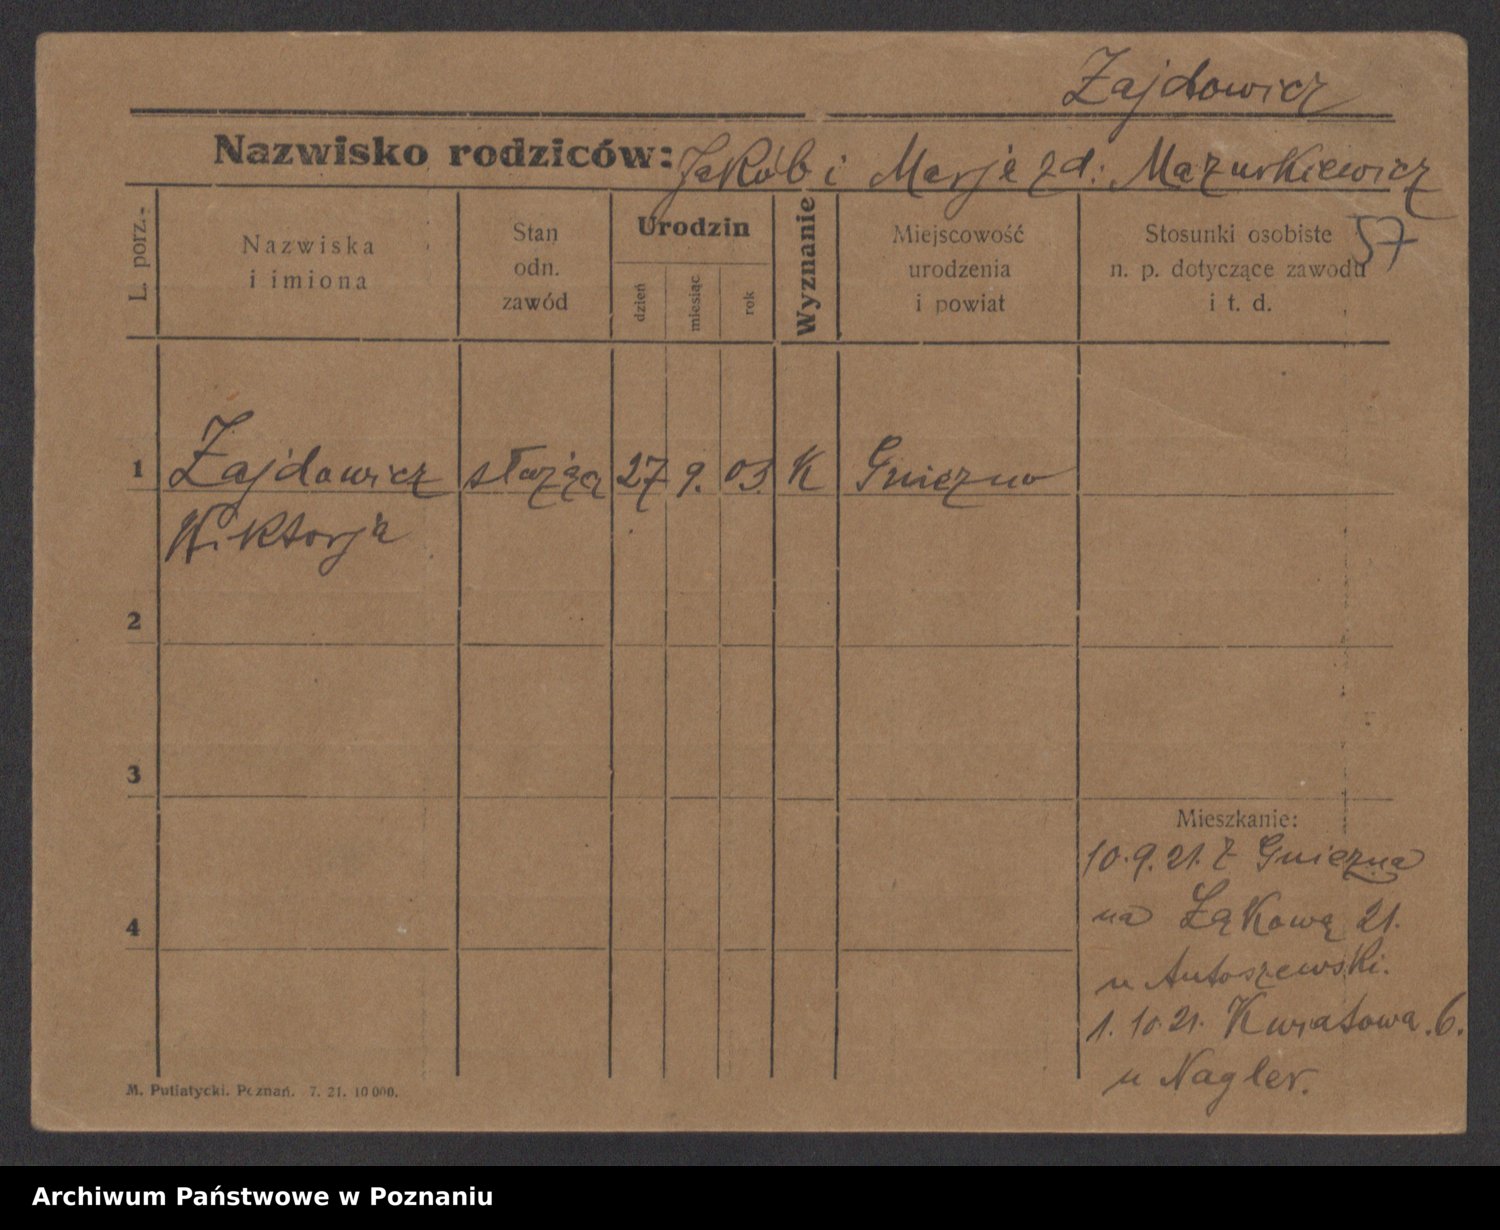 Zajdowicz
Nazwisko rodziców: Jakób i Marja zd: Mazurkiewicz
57
L. porz.
Nazwiska i imiona
Stan odn. zawód
Urodzin
dzień
miesiąc
rok
Wyznanie
Miejscowość urodzenia i powiat
Stosunki osobiste n. p. dotyczące zawodu i t. d.
1 Zajdowicz służąca 27 9. 03. K Gniezno
Wiktorja
2
3
Mieszkanie:
10.9.21. z Gniezna
4
na Łąkową 21.
u Antoszewski.
1.10.21. Kwiatowa.6.
u Nagler.
M. Putiatycki. Poznań. 7. 21. 10 000.
Archiwum Państwowe w Poznaniu